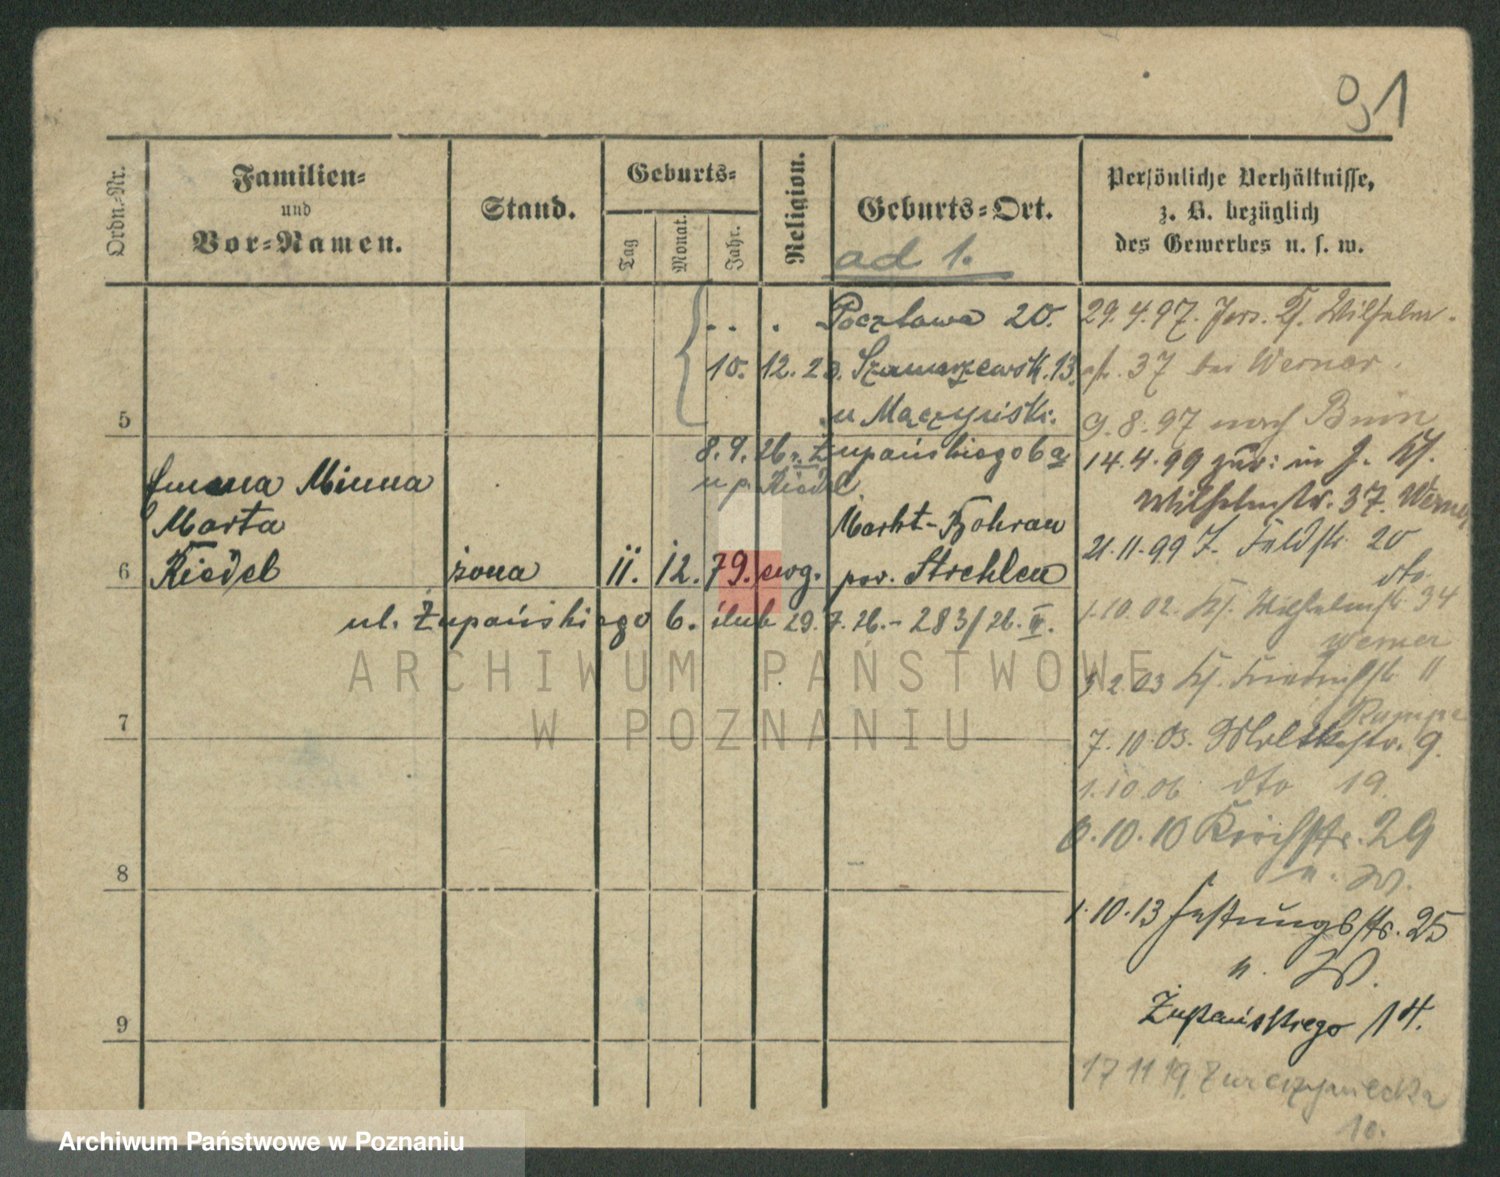 91
Ordn.-Nr.
Familien-
und
Vor-Namen.
Stand.
Geburts-
Tag
Monat.
Jahr.
Religion.
Geburts-Ort.
Persönliche Verhältnisse,
z. B. bezüglich
des Gewerbes u. s. w.
ad 1.
Poczlowa 20.
10. 12. 23. Szamarzewsk. 13.
u Mączyńsk.
5
8. 9. 26. Żupańskiego 6a
u p. Riedel
Emma Minna
Marta
Riedel
żona
11. 12. 79. ewg.
Markt-Bohrau
pow. Strehlen
6
ul. Żupańskiego 6. ślub 29. 7. 26. - 283/26. IV.
7
8
9
29. 4. 97. Jers. Wilhelm-
str. 37 bei Werner.
9. 8. 97 nach Bnin
14. 4. 99 zur: in J.
Wilhelmstr. 37. Werner
21. 11. 99 J. Feldstr. 20
dto.
1. 10. 02. Wilhelmstr. 34
Werner
2. 03 Friedrichstr. 11
Rumpe
7. 10. 03. Moltkestr. 9.
1. 10. 06 dto 19.
6. 10. 10 Kirchstr. 29
n. W.
1. 10. 13 Festungsstr. 25
n. W.
Żupańskiego 14.
17 11 19.
10.
ARCHIWUM PAŃSTWOWE
W POZNANIU
Archiwum Państwowe w Poznaniu